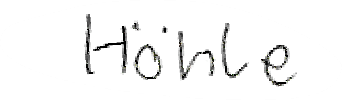 Höhle